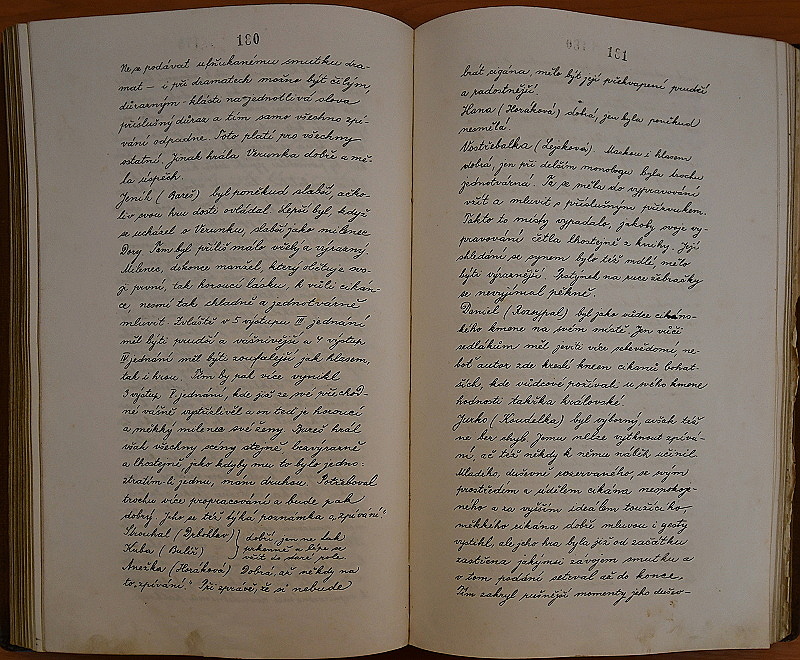 180
Nesmí podávat ufňukanému smutku dra-
mat – i při dramatech možno být čilým,
důrazným – klásti na jednotlivá slova
příslušný důraz a tím samo všechno zpí-
vání odpadne. Toto platí pro všechny
ostatní. Jinak hrála Verunka dobře a mě-
la úspěch.
Jeník (Bareš) byl poněkud slabší, ačko-
liv svou hru dosti ovládal. Lepší byl, když
se ucházel o Verunku, slabší jako milenec
Dory. Tam byl příliš málo vřelý a výrazný.
Milenec, dokonce manžel, který obětuje svo-
ji první, tak horoucí lásku, k vůli cikán-
ce, nesmí tak chladně a jednotvárně
mluvit. Zvláště v 5 výstupu III jednání
měl býti prudší a vášnivější a 4 výstup
IV jednání měl býti zoufalejší jak hlasem,
tak i hrou. Tím by pak více vynikl
3 výstup I jednání, kde již se své přechod-
né vášně vystřízlivěl a on teď je horoucí
a měkký milenec své ženy. Bareš hrál
však všechny scény stejně bezvýrazně
a lhostejně, jako kdyby mu to bylo jedno:
ztratím-li jednu, mám druhou. Potřeboval
trochu více propracování a bude pak
dobrý. Jeho se též týká poznámka o „zpívání“.
Strouhal (Drbohlav) } dobří, jen ne tak
Kuba (Bališ) } a lépe se
vžít do staré role
Anežka (Horáková) Dobrá, až někdy na
to „zpívání“. Při zprávě, že si nebude
181
brát cigána, mělo být její překvapení prudší
a radostnější.
Hana (Horáková) dobrá, jen byla poněkud
nesmělá.
Vostřebalka (Lejsková). Maskou i hlasem
dobrá, jen při delším monologu byla trochu
jednotvárná. Ta se měla do vypravování
vžít a mluvit s příslušným přízvukem.
Takto to místy vypadalo, jakoby svoje vy-
pravování četla lhostejně z knihy. Její
shledání se synem bylo též mdlé, mělo
býti výraznější. Prstýnek na ruce žebračky
se nevyjímal pěkně.
Daniel (Rozsypal) byl jako vůdce cikáns-
kého kmene na svém místě. Jen vůči
sedlákům měl jeviti více sebevědomí, ne-
boť autor zde kreslí kmen cikánů bohat-
ších, kde vůdcové požívali u svého kmene
hodnosti takřka královské.
Jurko (Koudelka) byl výborný, avšak též
ne bez chyb. Jemu nelze vytknout zpívá-
ní, ač též někdy k němu náběh učinil.
Mladého, duševně rozervaného, se svým
prostředím a údělem cikána nespokoje-
ného a za vyšším ideálem toužícího,
měkkého cikána dobře mluvou i gesty
vystihl, ale jeho hra byla již od začátku
zastřena jakýmsi závojem smutku a
v tom podání setrval až do konce.
Tím zakryl rušnější momenty jeho dušev-